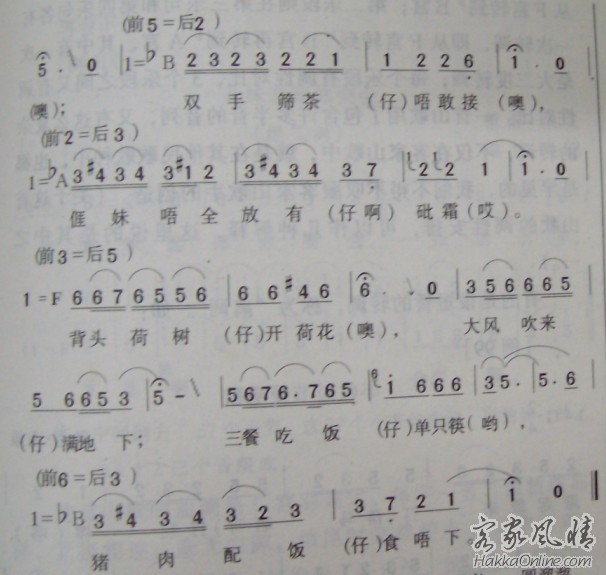 (前5=后2)
5. 0 | 1=♭B 2 3 2 3 2 2 1 | 1 2 2 6 | 1. 0
(噢); 双 手 筛 茶 (仔)唔敢接 (噢),
(前2=后3)
1=♭A 3 #4 3 4 3 #1 2 | 3 #4 3 4 3 7 | 2 2 1 | 1. 0
𠊎 妹 唔 全 放 有 (仔啊) 砒霜(哎)。
(前3=后5)
1=F 6 6 7 6 5 5 6 | 6 6 #4 6 | 6. 0 | 3 5 6 6 6 6 5
背头 荷 树 (仔)开 荷花(噢), 大风 吹来
5 6 6 5 3 | 5 - | 5 6 7 6. 7 6 5 | 6 i 6 6 6 | 3 5. 5. 6
(仔)满地 下; 三餐 吃 饭 (仔)单只筷(哟),
(前6=后3)
1=♭B 3 #4 3 4 3 2 3 | 3 7 2 1 | 1 0
猪 肉 配 饭 (仔)食 唔 下。
客家风情
HakkaOnline.com